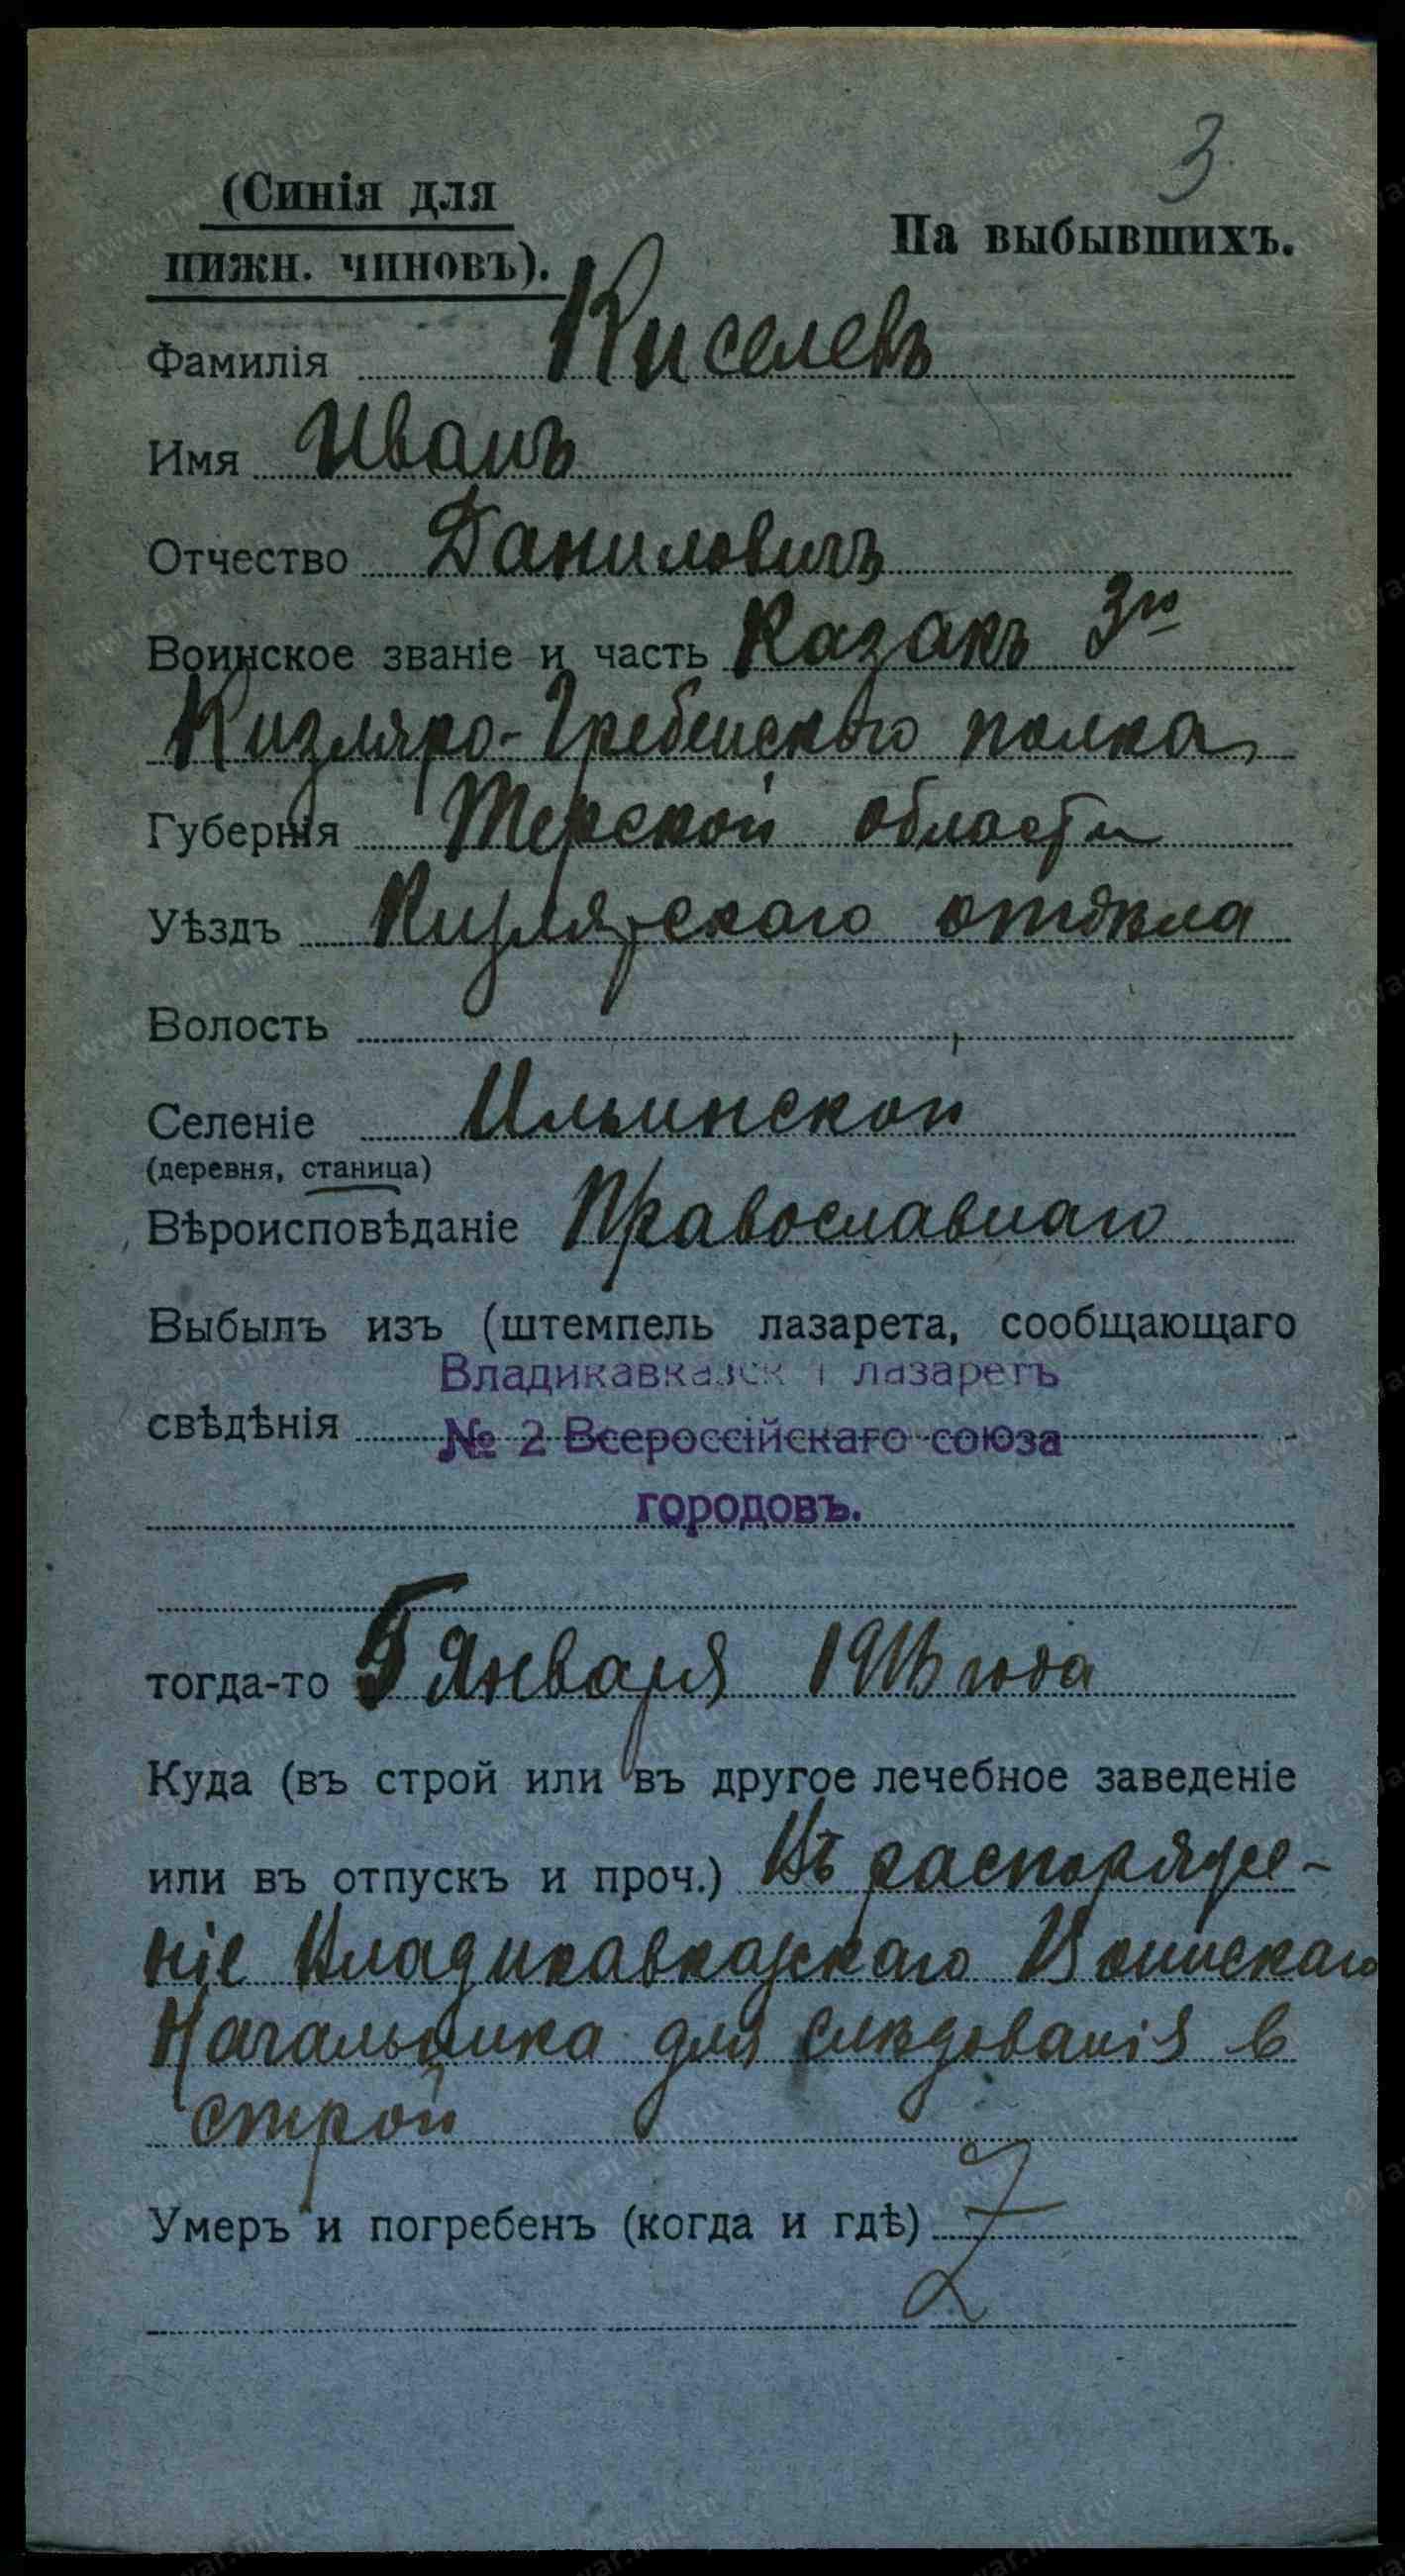 3
(Синія для
нижн. чиновъ).
На выбывшихъ.
Фамилія Киселевъ
Имя Иванъ
Отчество Даниловичъ
Воинское званіе и часть Казакъ 3го
Кизляро-Гребенского полка,
Губернія Терской области
Уѣздъ Кизлярскаго отдѣла
Волость
Селеніе Ильинской
(деревня, станица)
Вѣроисповѣданіе Православнаго
Выбылъ изъ (штемпель лазарета, сообщающаго
Владикавказск й лазаретъ
свѣдѣнія № 2 Всероссійскаго союза
городовъ.
тогда-то 5 Января года
Куда (въ строй или въ другое лечебное заведеніе
или въ отпускъ и проч.) Въ распоряже-
ніе Владикавказскаго Воинскаго
Начальника для слѣдованія в
строй
Умеръ и погребенъ (когда и гдѣ)
www.gwar.mil.ru